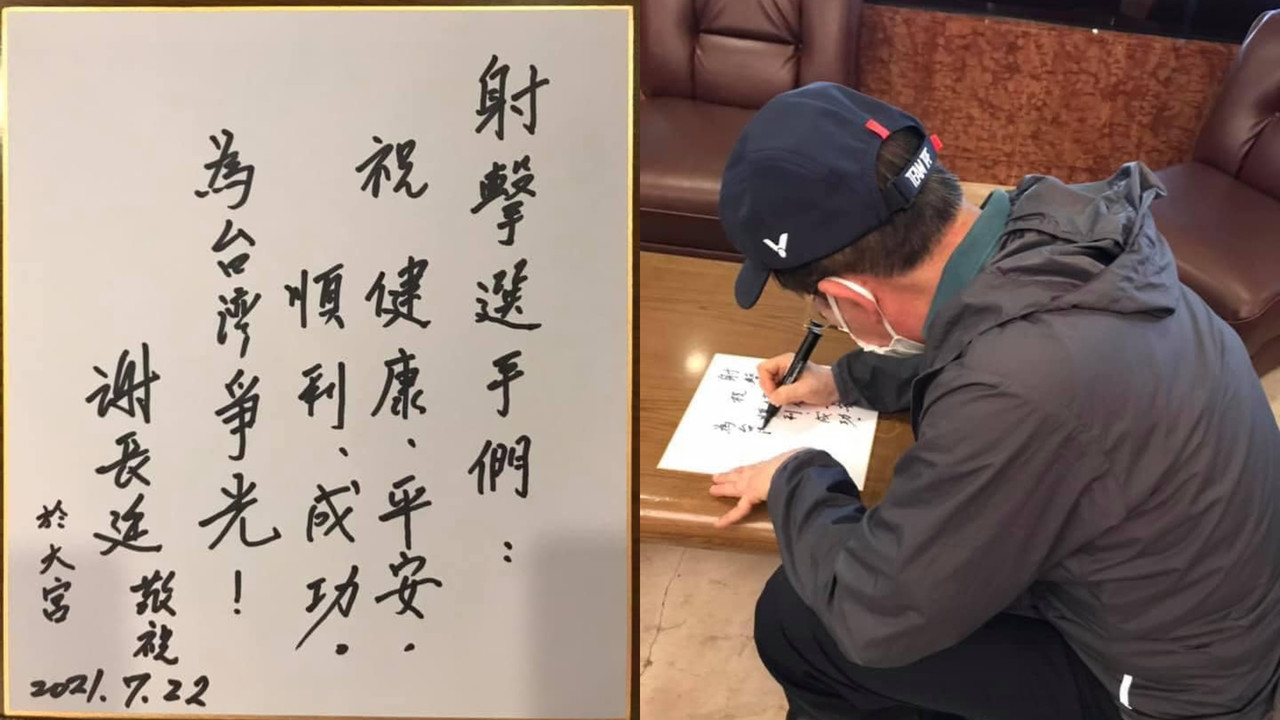 射擊選手們：
祝 健康、平安.
順利、成功.
為台灣爭光！
謝長廷 敬祝
於大宮
2021.7.22
TEAM TPE
射擊
祝
利、成功.
為台